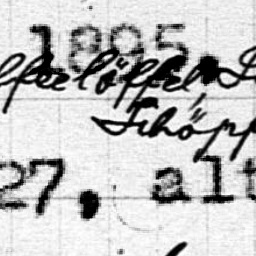 1895.
ffeelöffel, S
Schöpp
27, alt